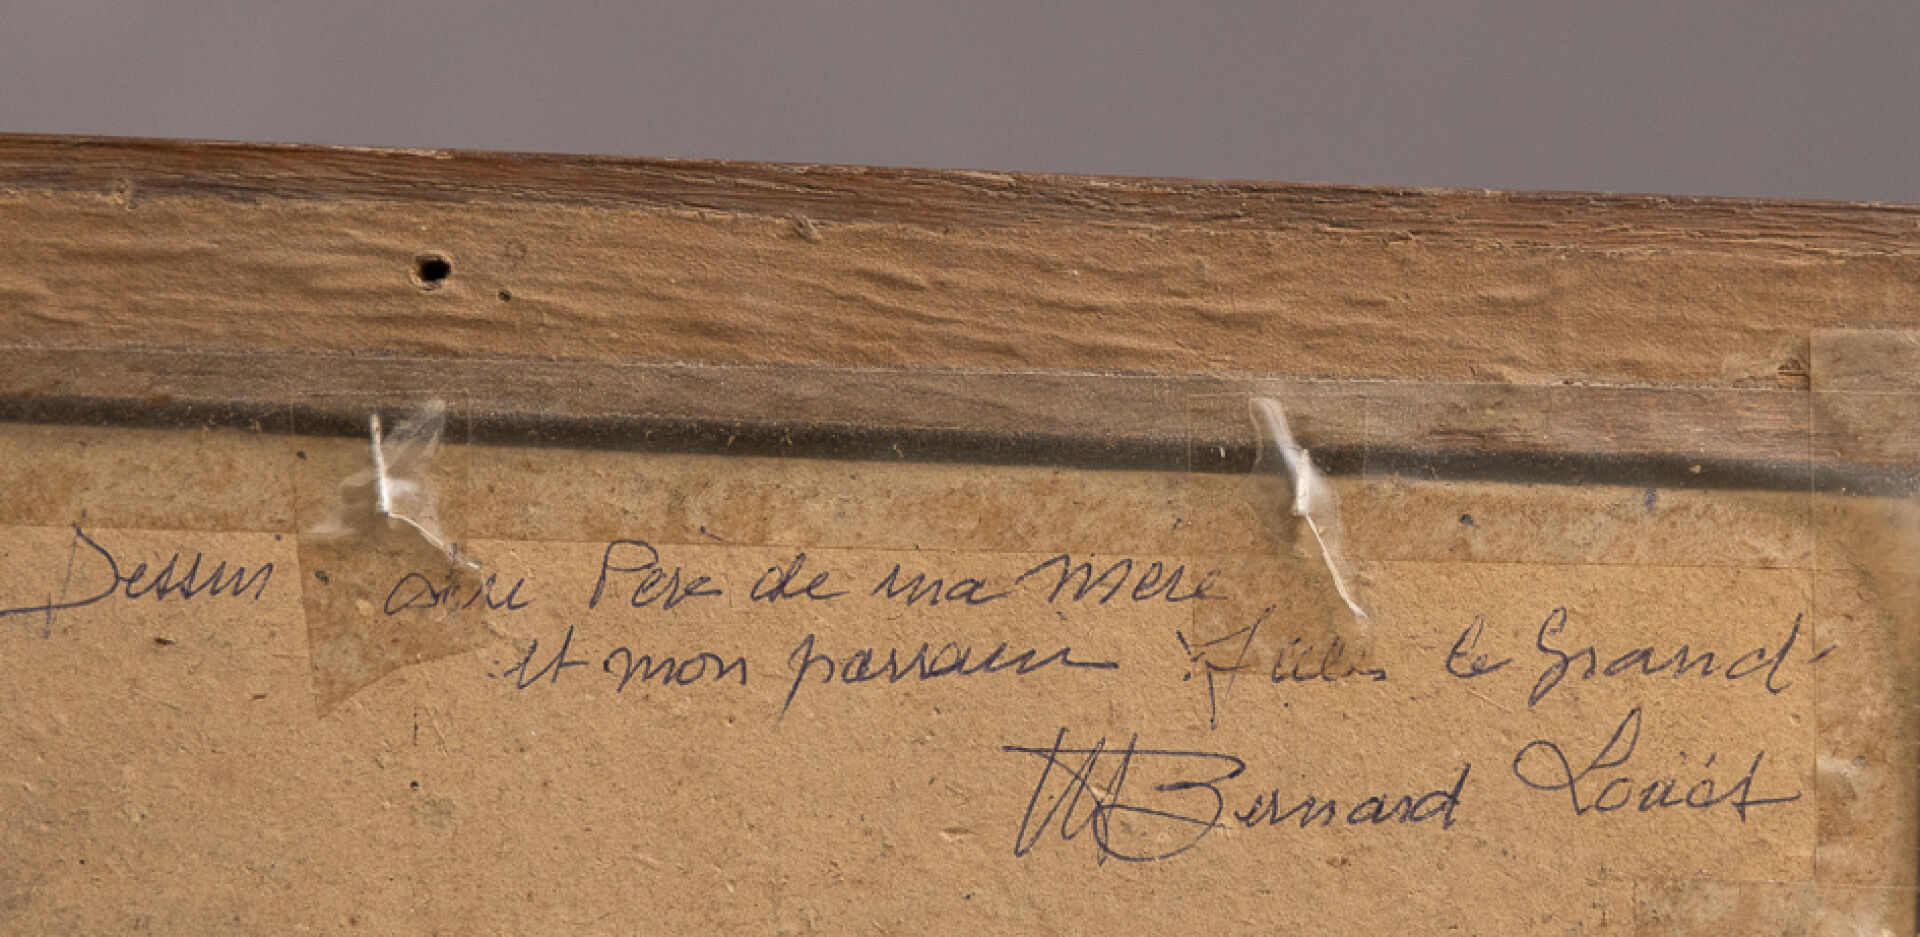 Dessin du Père de ma Mère
et mon parrain Jules le Grand
M Bernard Louët